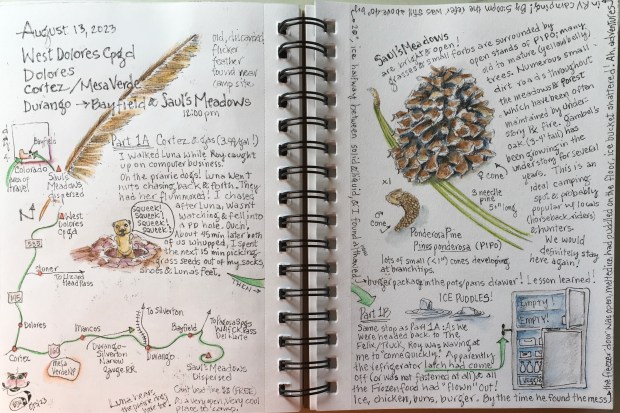 August 13, 2023
West Dolores Cpgd
Dolores
Cortez / Mesa Verde
Durango → Bayfield & Saul's Meadows
12:00 pm
old, discarded
flicker
feather
found near
camp site.
Bayfield
Colorado
Area of
travel
Saul's
Meadows
Dispersed
N
West
Dolores
Cpgd
Stoner
To Lizard
Head Pass
Dolores
Cortez
Mancos
Mesa
Verde NP
To Silverton
Durango-
Silverton
Narrow
Gauge RR
Durango
Bayfield
To Pagosa Spgs
Wolf Ck Pass
Del Norte
Saul's Meadows
Dispersed
Part 1A Cortez & gas (3.99/gal!)
I walked Luna while Roy caught
up on computer business.
Oh the prairie dogs! Luna went
nuts chasing back & forth. They
had her flummoxed! I chased
after Luna. Wasn't
watching & fell into
a PD hole. Ouch.
About 45 min later both
of us whupped, I spent
the next 15 min picking
grass seeds out of my socks,
shoes & Luna's feet.
THEN→
Squeek!
Squeek!
Squeek!
Saul's Meadows
are bright & open!
Grasses & small forbs are surrounded by
open stands of PIPO; many
old to mature (yellowbelly)
trees. Numerous small
dirt roads throughout
the meadows & forest
which have been often
maintained by under-
story & fire. Gambel's
oak (3-4' tall) has
been growing in the
understory for several
years. This is an
ideal camping
spot & probably
popular w/ locals
(horseback riders)
& hunters.
We would
definitely stay
here again!
x1
♀ cone
3 needle
pine
5" long
♂ cone
Ponderosa Pine
Pinus ponderosa (PIPO)
lots of small (<1") cones developing
at branch tips.
burger package in the pots/pans drawer! Lesson learned!
Part 1B
ICE PUDDLES!
Same stop as Part 1A: As we
were headed back to The
Felix/Truck, Roy was waving at
me to come quickly! Apparently
the refrigerator latch had come
off (or was not fastened at all) & all
the frozen food had "flown" out!
Ice, chicken, buns, burger. By the time he found the mess→
Empty!
Empty!
the freezer door was open, melted ice had puddled on the floor, ice bucket shattered! Ah, adventures~